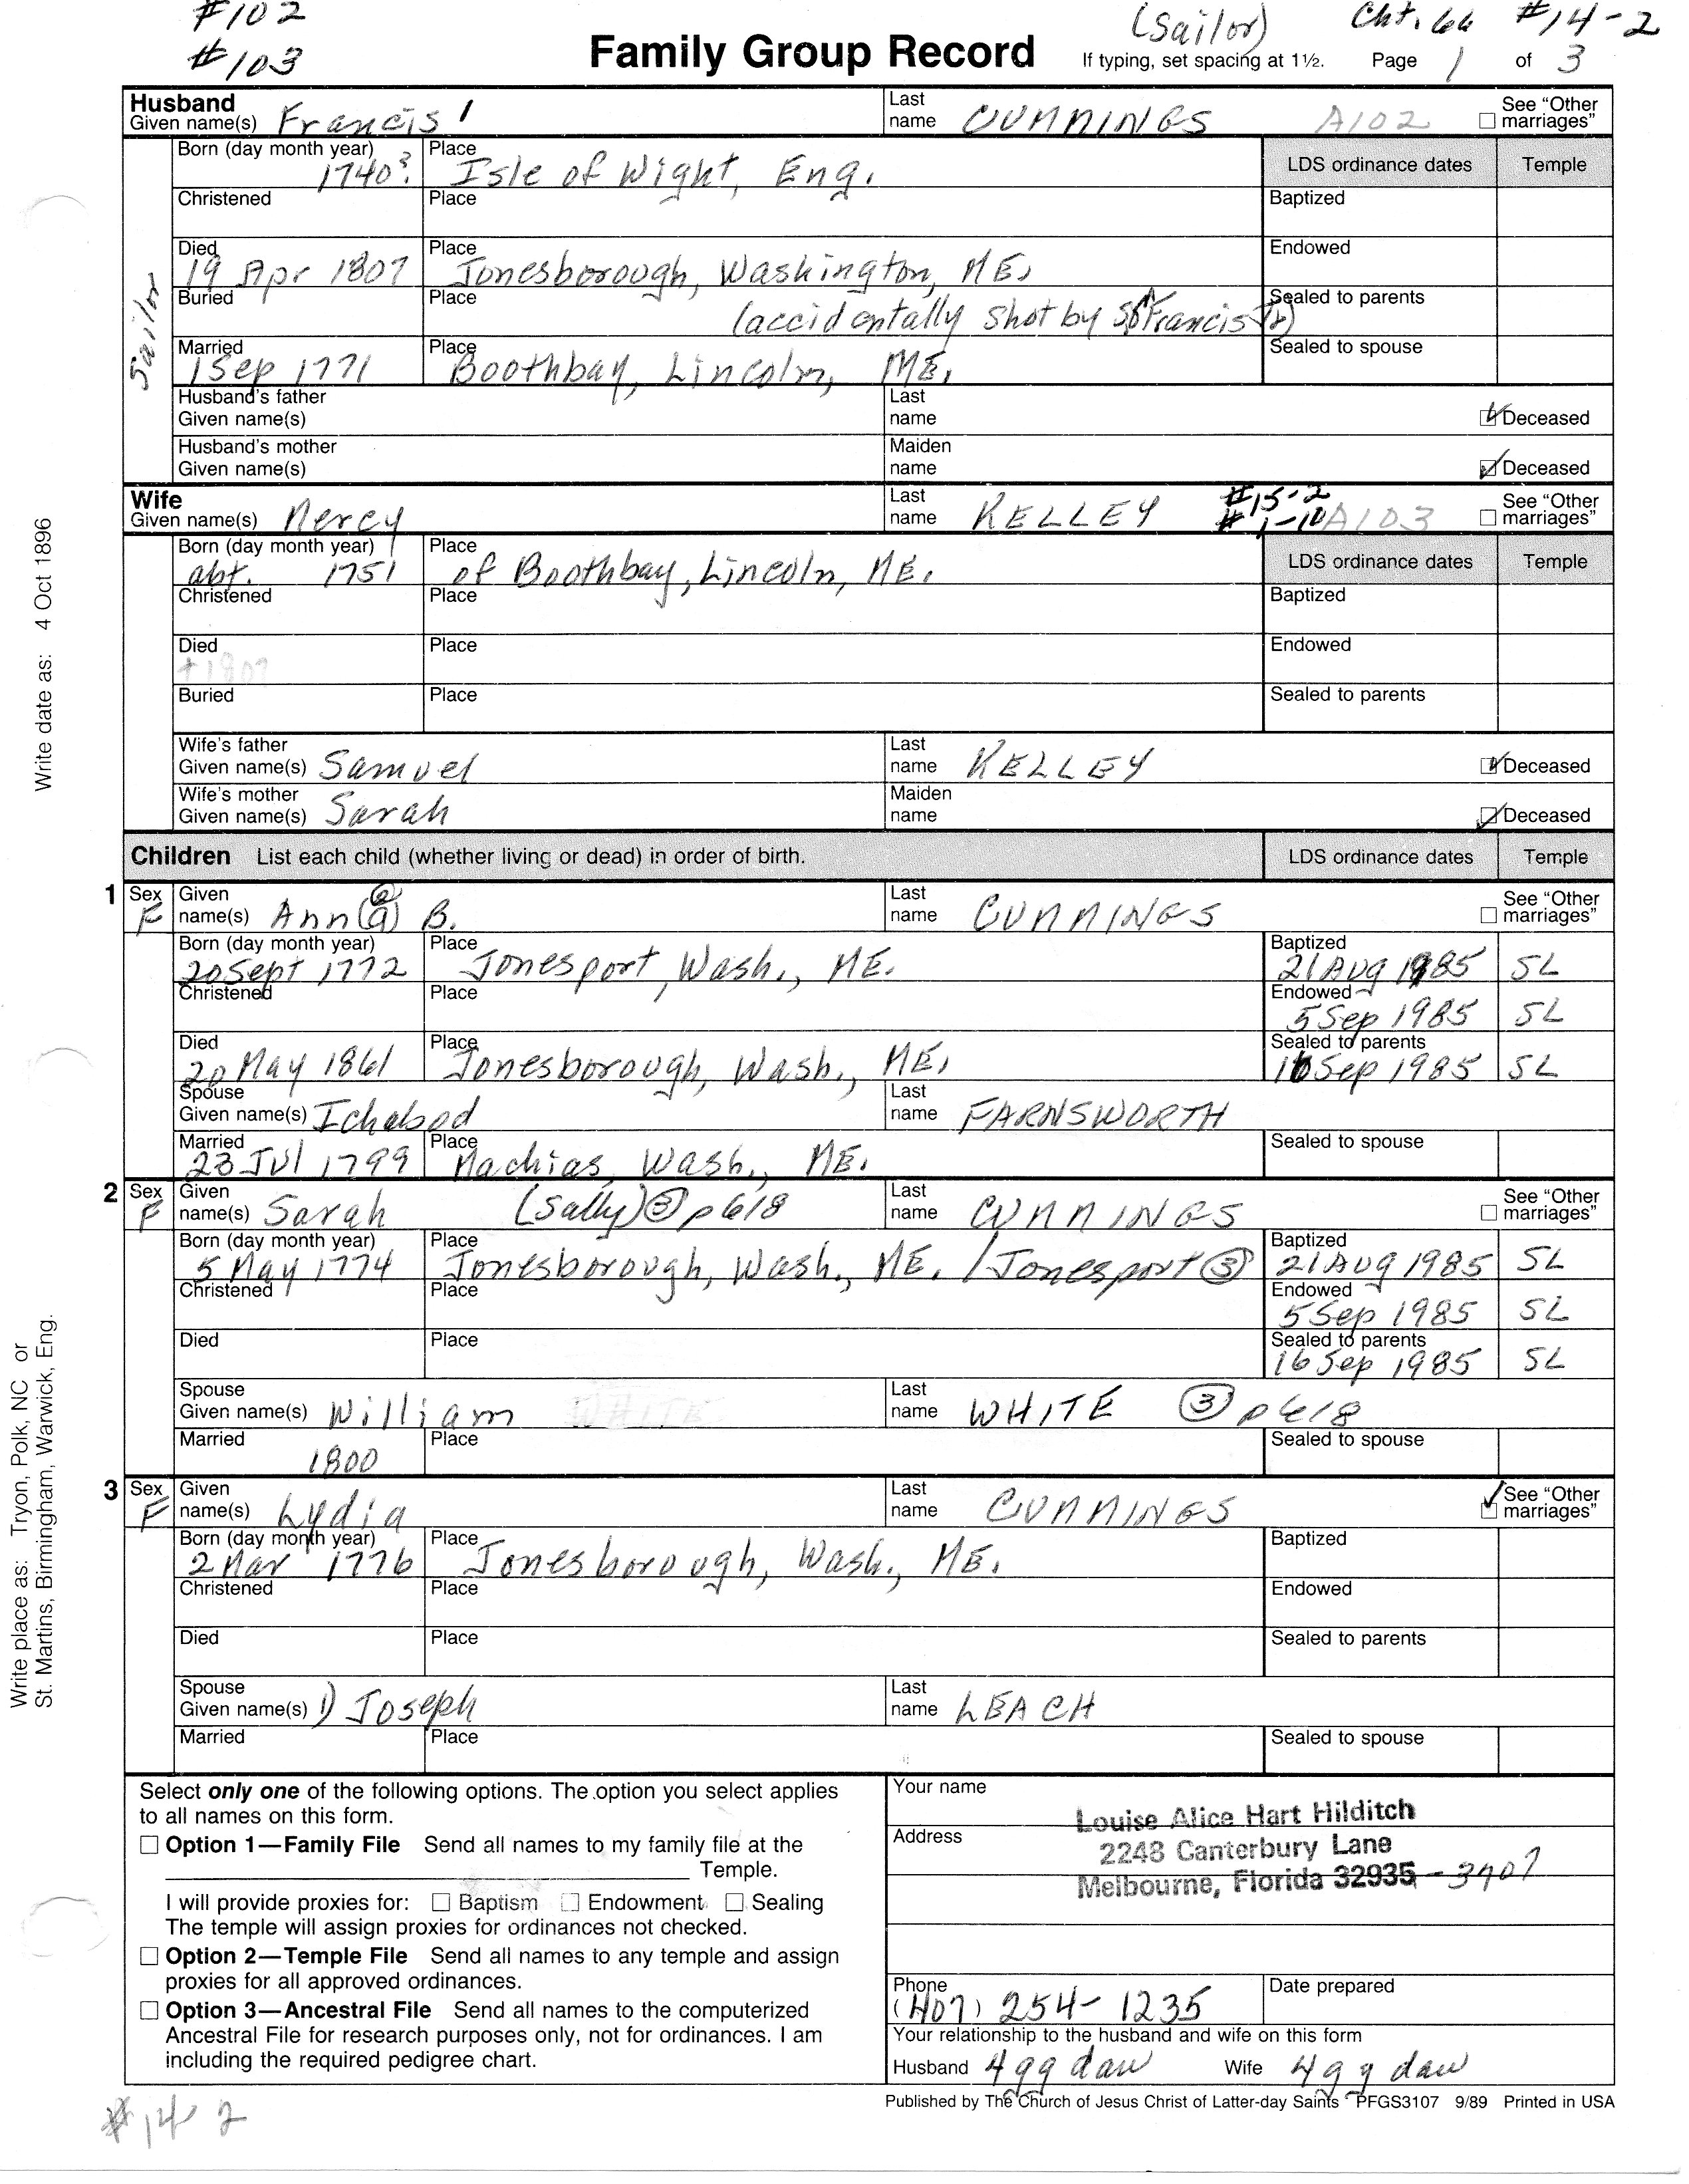 #102 (Sailor) Cht. 66 #14-2
#103 Family Group Record If typing, set spacing at 1½. Page 1 of 3
Husband
Given name(s) Francis 1 Last name CUMMINGS A102 See "Other marriages"
Born (day month year) 1740? Place Isle of Wight, Eng. LDS ordinance dates Temple
Christened Place Baptized
Died 19 Apr 1807 Place Jonesborough, Washington, ME. Endowed
Buried Place (accidentally shot by Francis Jr) Sealed to parents
Married 1 Sep 1771 Place Boothbay, Lincoln, ME. Sealed to spouse
Sailor
Husband's father
Given name(s) Last name Deceased
Husband's mother
Given name(s) Maiden name Deceased
Wife
Given name(s) Mercy Last name KELLEY #15-2 #1-10 A103 See "Other marriages"
Born (day month year) abt. 1751 Place of Boothbay, Lincoln, ME. LDS ordinance dates Temple
Christened Place Baptized
Died +1807 Place Endowed
Buried Place Sealed to parents
Wife's father
Given name(s) Samuel Last name KELLEY Deceased
Wife's mother
Given name(s) Sarah Maiden name Deceased
Children List each child (whether living or dead) in order of birth. LDS ordinance dates Temple
1 Sex F Given name(s) Ann(a) B. Last name CUMMINGS See "Other marriages"
Born (day month year) 20 Sept 1772 Place Jonesport, Wash., ME. Baptized 21 Aug 1985 SL
Christened Place Endowed 5 Sep 1985 SL
Died 20 May 1861 Place Jonesborough, Wash., ME. Sealed to parents 16 Sep 1985 SL
Spouse
Given name(s) Ichabod Last name FARNSWORTH
Married 23 Jul 1799 Place Machias, Wash., ME. Sealed to spouse
2 Sex F Given name(s) Sarah (Sally) ③ p618 Last name CUMMINGS See "Other marriages"
Born (day month year) 5 May 1774 Place Jonesborough, Wash., ME. / Jonesport ③ Baptized 21 Aug 1985 SL
Christened Place Endowed 5 Sep 1985 SL
Died Place Sealed to parents 16 Sep 1985 SL
Spouse
Given name(s) William WHITE Last name WHITE ③ p618
Married 1800 Place Sealed to spouse
3 Sex F Given name(s) Lydia Last name CUMMINGS See "Other marriages"
Born (day month year) 2 Mar 1776 Place Jonesborough, Wash., ME. Baptized
Christened Place Endowed
Died Place Sealed to parents
Spouse
Given name(s) 1) Joseph Last name LEACH
Married Place Sealed to spouse
Write date as: 4 Oct 1896
Write place as: Tryon, Polk, NC or
St. Martins, Birmingham, Warwick, Eng.
Select only one of the following options. The option you select applies
to all names on this form.
Option 1—Family File Send all names to my family file at the
Temple.
I will provide proxies for: Baptism Endowment Sealing
The temple will assign proxies for ordinances not checked.
Option 2—Temple File Send all names to any temple and assign
proxies for all approved ordinances.
Option 3—Ancestral File Send all names to the computerized
Ancestral File for research purposes only, not for ordinances. I am
including the required pedigree chart.
Your name
Louise Alice Hart Hilditch
Address 2248 Canterbury Lane
Melbourne, Florida 32935 -3707
Phone (407) 254-1235 Date prepared
Your relationship to the husband and wife on this form
Husband 4 gg dau Wife 4 gg dau
Published by The Church of Jesus Christ of Latter-day Saints PFGS3107 9/89 Printed in USA
#14 2